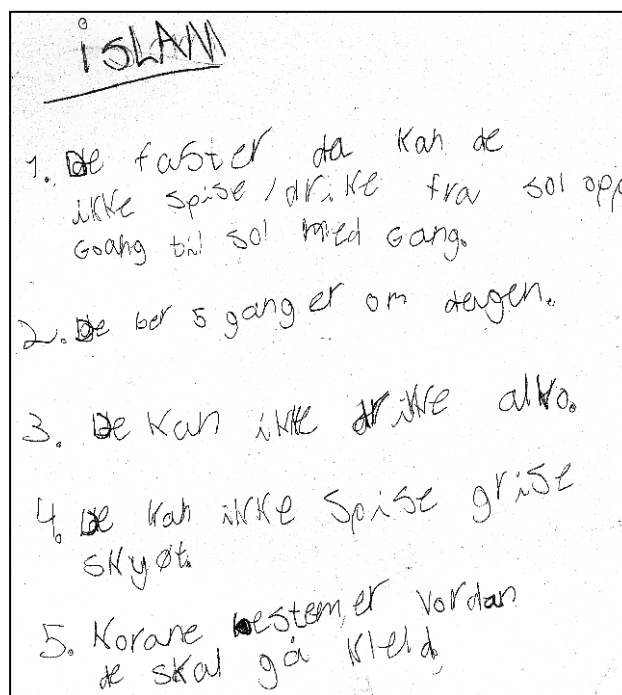 iSLAM
1. De faster da kan de
ikke spise/drike fra sol opp
Goang til sol med Gang.
2. De ber 5 gang er om dagen.
3. De kan ikke drike alko.
4. De kan ikke spise grise
skyøt.
5. Korane bestemer vordan
de skal gå kleid